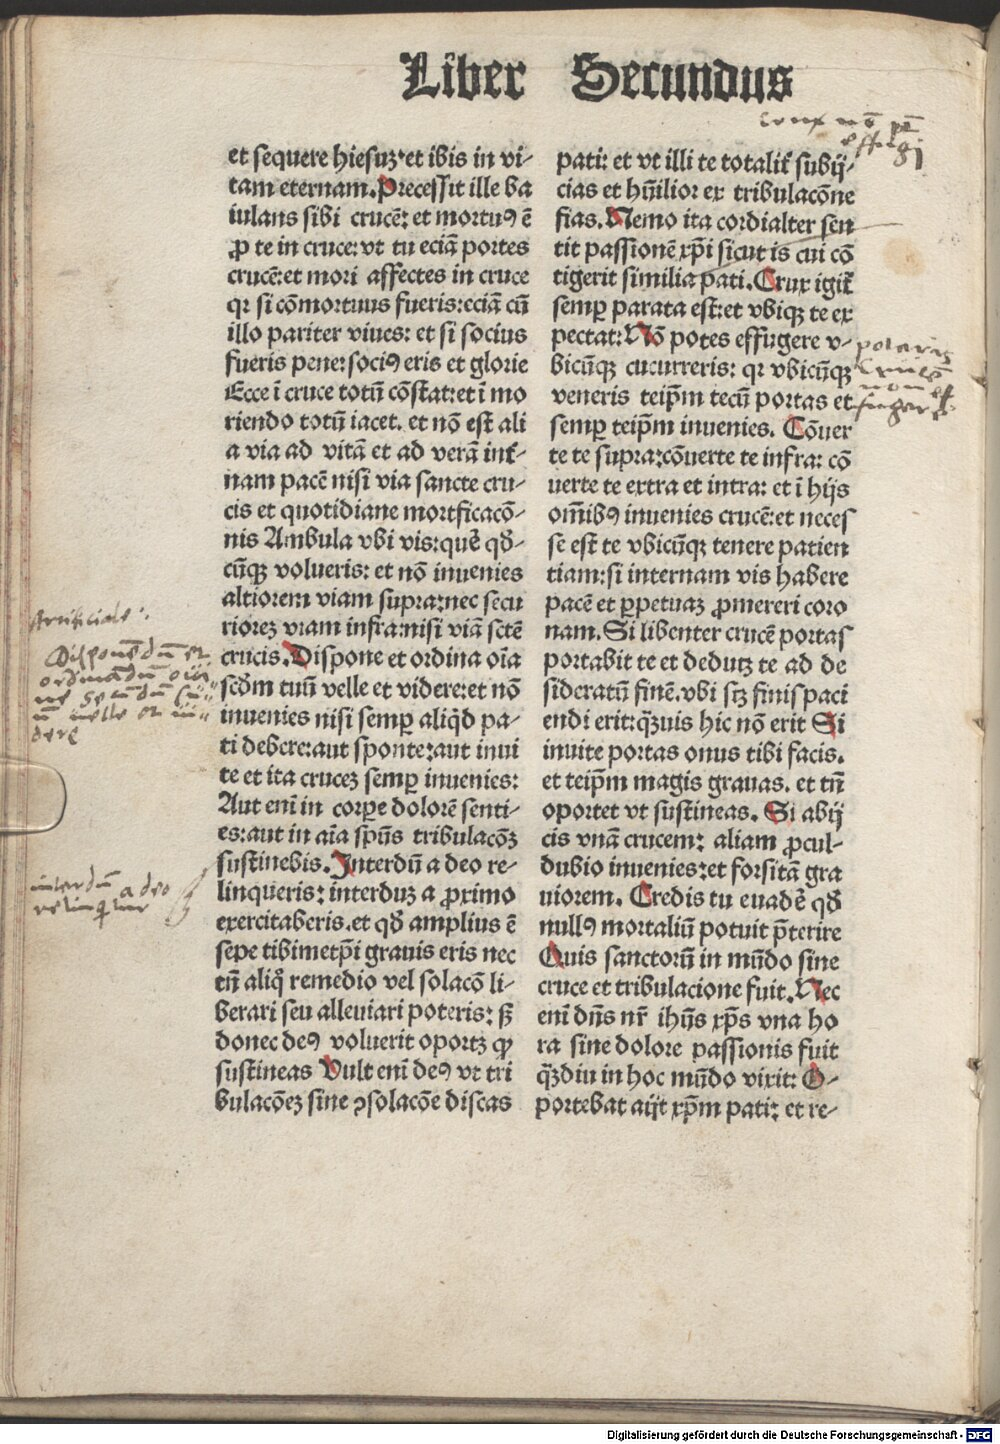 Liber Secundus
et sequere hiesuꝫ·et ibis in vi-
tam eternam. Precessit ille ba
iulans sibi crucē: et mortuꝰ ē
ꝓ te in cruce: vt tu eciā portes
crucē: et mori affectes in cruce
qꝛ si cōmortuus fueris: eciā cū
illo pariter viues: et si socius
fueris pene: sociꝰ eris et glorie
Ecce ī cruce totū cōstat: et ī mo
riendo totū iacet. et nō est ali
a via ad vitā et ad verā int̄-
nam pacē nisi via sancte cru-
cis et quotidiane mortficacō-
nis Ambula vbi vis: querē qđ-
cūqꝫ volueris: et nō inuenies
altiorem viam supra: nec secu
riorēꝫ vram infra: nisi viā sctē
crucis. Dispone et ordina oīa
scđm tuū velle et videre: et nō
inuenies nisi semꝑ aliqđ pa-
ti debere: aut sponte: aut inui
te et ita cruceꝫ semꝑ inuenies:
Aut enī in corꝑe dolorē senti-
es: aut in aīa spūs tribulacōꝫ
sustinebis. Interdū a deo re-
linqueris: interduꝫ a ꝓximo
exercitaberis. et qđ amplius ē
sepe tibimetp̄i grauis eris nec
tn̄ aliq̊ remedio vel solacō li-
berari seu alleuiari poteris: sꝫ
donec deꝰ voluerit oportꝫ ꝙ
sustineas Vult enī deꝰ vt tri
bulacōeꝫ sine ꝯsolacōe discas
pati: et vt illi te totalit̄ subij-
cias et hūilior ex tribulacōne
fias. Nemo ita cordialter sen
tit passionē xp̄i sicut is cui cō
tigerit similia pati. Crux igit̄
semꝑ parata est: et vbiqꝫ te ex
pectat: Nō potes effugere v-
bicūqꝫ cucurreris: qꝛ vbicūqꝫ
veneris teip̄m tecū portas et
semꝑ teip̄m inuenies. Cōuer
te te supra: cōuerte te infra: cō
uerte te extra et intra: et ī hijs
om̄ibꝰ inuenies crucē: et neces
se est te vbicūqꝫ tenere patien
tiam: si internam vis habere
pacē et ꝑpetuaꝫ ꝓmereri coro
nam. Si libenter crucē portas
portabit te et dedutꝫ te ad de
sideratū finē. vbi sꝫ finis paci
endi erit: qͣꝫuis hic nō erit Si
inuite portas onus tibi facis.
et teip̄m magis grauas. et tn̄
oportet vt sustineas. Si abij
cis vnā crucem: aliam ꝓcul-
dubio inuenies: et forsitā gra
uiorem. Credis tu euadē qđ
nullꝰ mortaliū potuit p̄terire
Quis sanctorū in mūdo sine
cruce et tribulacione fuit. Nec
enī dn̄s nr̄ ihūs xp̄s vna ho
ra sine dolore passionis fuit
qͣꝫdiu in hoc mūdo vixit: O-
portebat aijt xp̄m pati: et re-
Disponēdū et
ordinādū oīa
interdū a deo
relinq̄tur
Digitalisierung gefördert durch die Deutsche Forschungsgemeinschaft - DFG